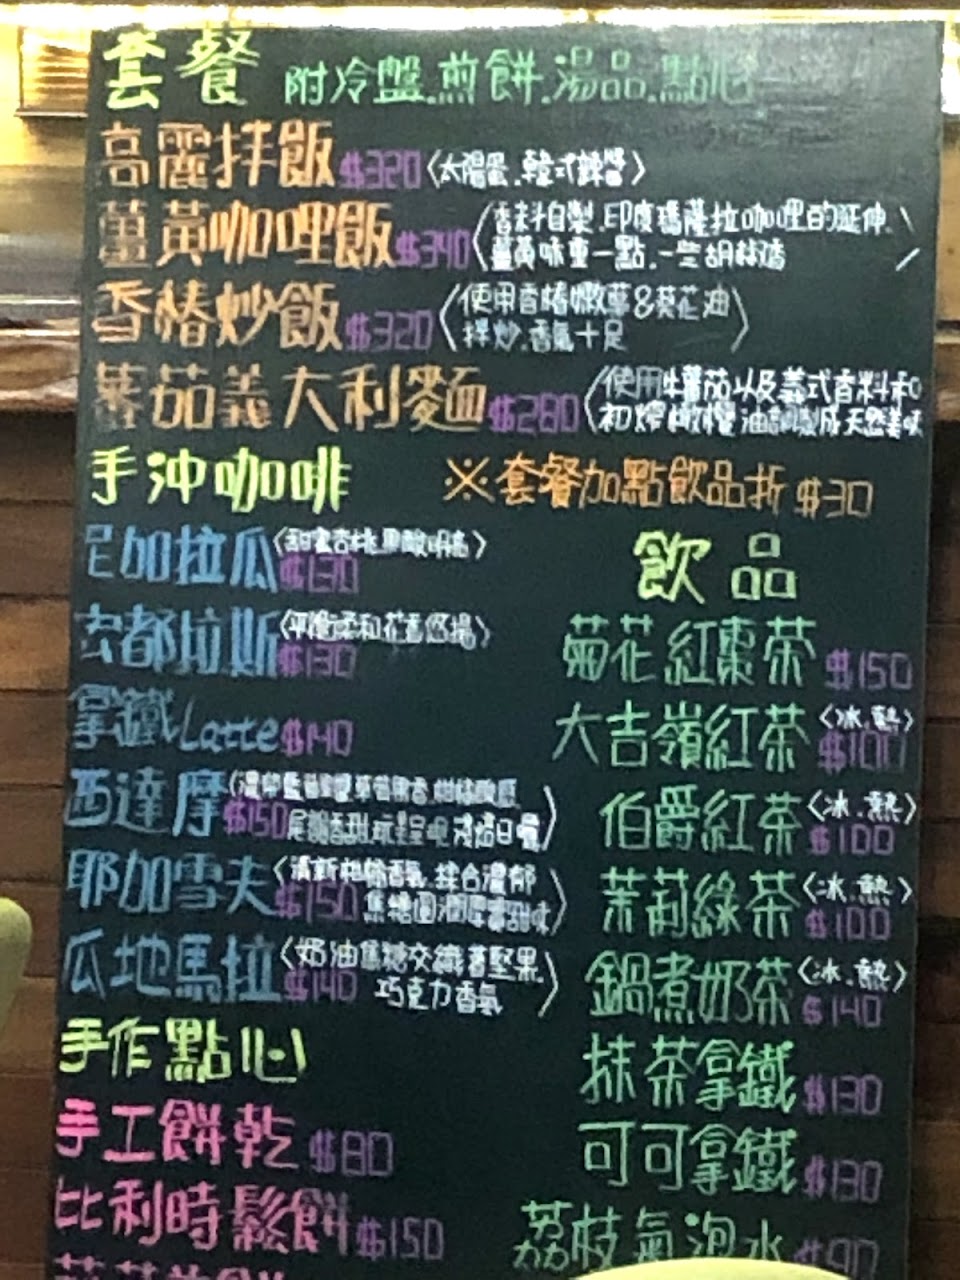 套餐 附冷盤.煎餅.湯品.點心
高麗拌飯 $320 〈太陽蛋.韓式辣醬〉
薑黃咖哩飯 $340 〈香料自製.印度瑪薩拉咖哩的延伸.
薑黃味重一點.一些胡椒香
香椿炒飯 $320 〈使用香椿嫩葉&葵花油
拌炒.香氣十足〉
蕃茄義大利麵 $280 〈使用牛蕃茄以及義式香料和
初榨橄欖油調製成天然美味
手沖咖啡
※套餐加點飲品折 $30
尼加拉瓜 $130
宏都拉斯 〈平衡柔和花香悠揚〉 $130
拿鐵Latte $140
西達摩 $150
耶加雪夫 $150 〈清新柑橘香氣.揉合濃郁
焦糖圓潤厚實甜味〉
瓜地馬拉 $140 〈奶油焦糖交織著堅果.
巧克力香氣〉
手作點心
手工餅乾 $80
比利時鬆餅 $150
飲品
菊花紅棗茶 $150
大吉嶺紅茶 〈冰.熱〉 $100
伯爵紅茶 〈冰.熱〉 $100
茉莉綠茶 〈冰.熱〉 $100
鍋煮奶茶 〈冰.熱〉 $140
抹茶拿鐵 $130
可可拿鐵 $130
荔枝氣泡水 $90